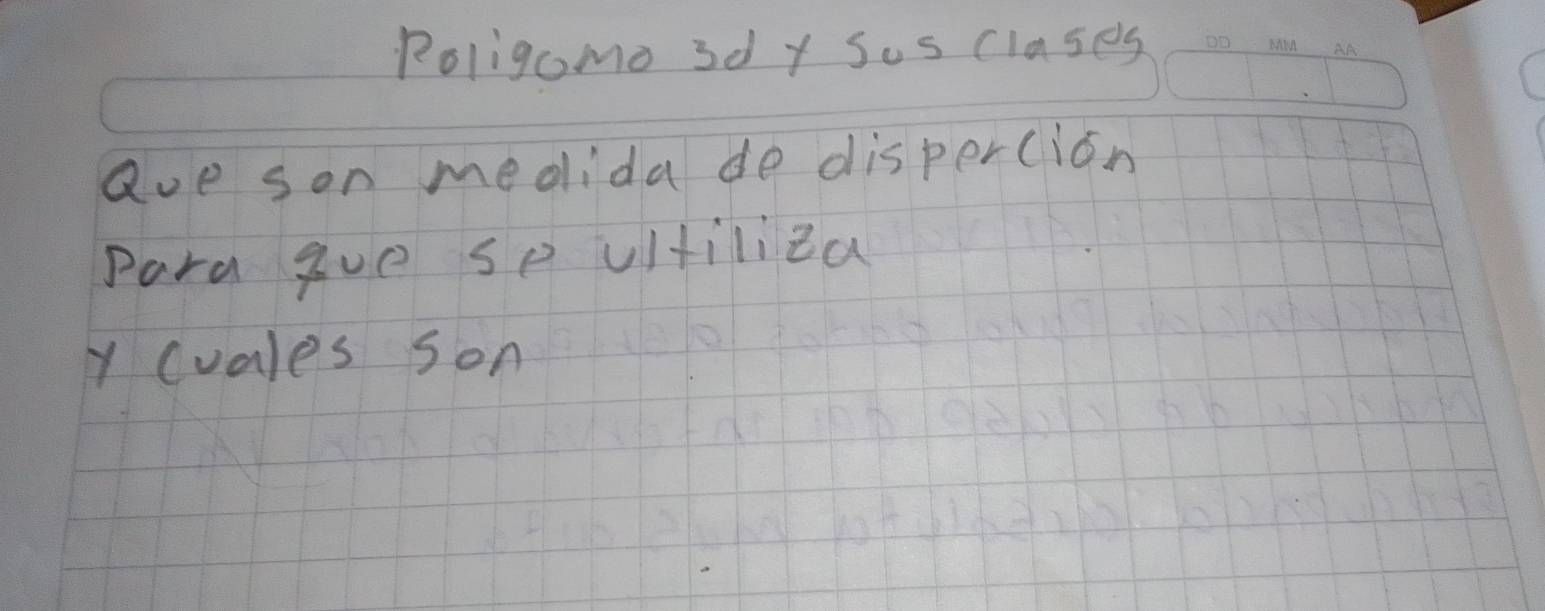 Poligomo 3d y sus clases
DD MM AA
Que son medida de disperción
Para que se ultiliza
y cuales son